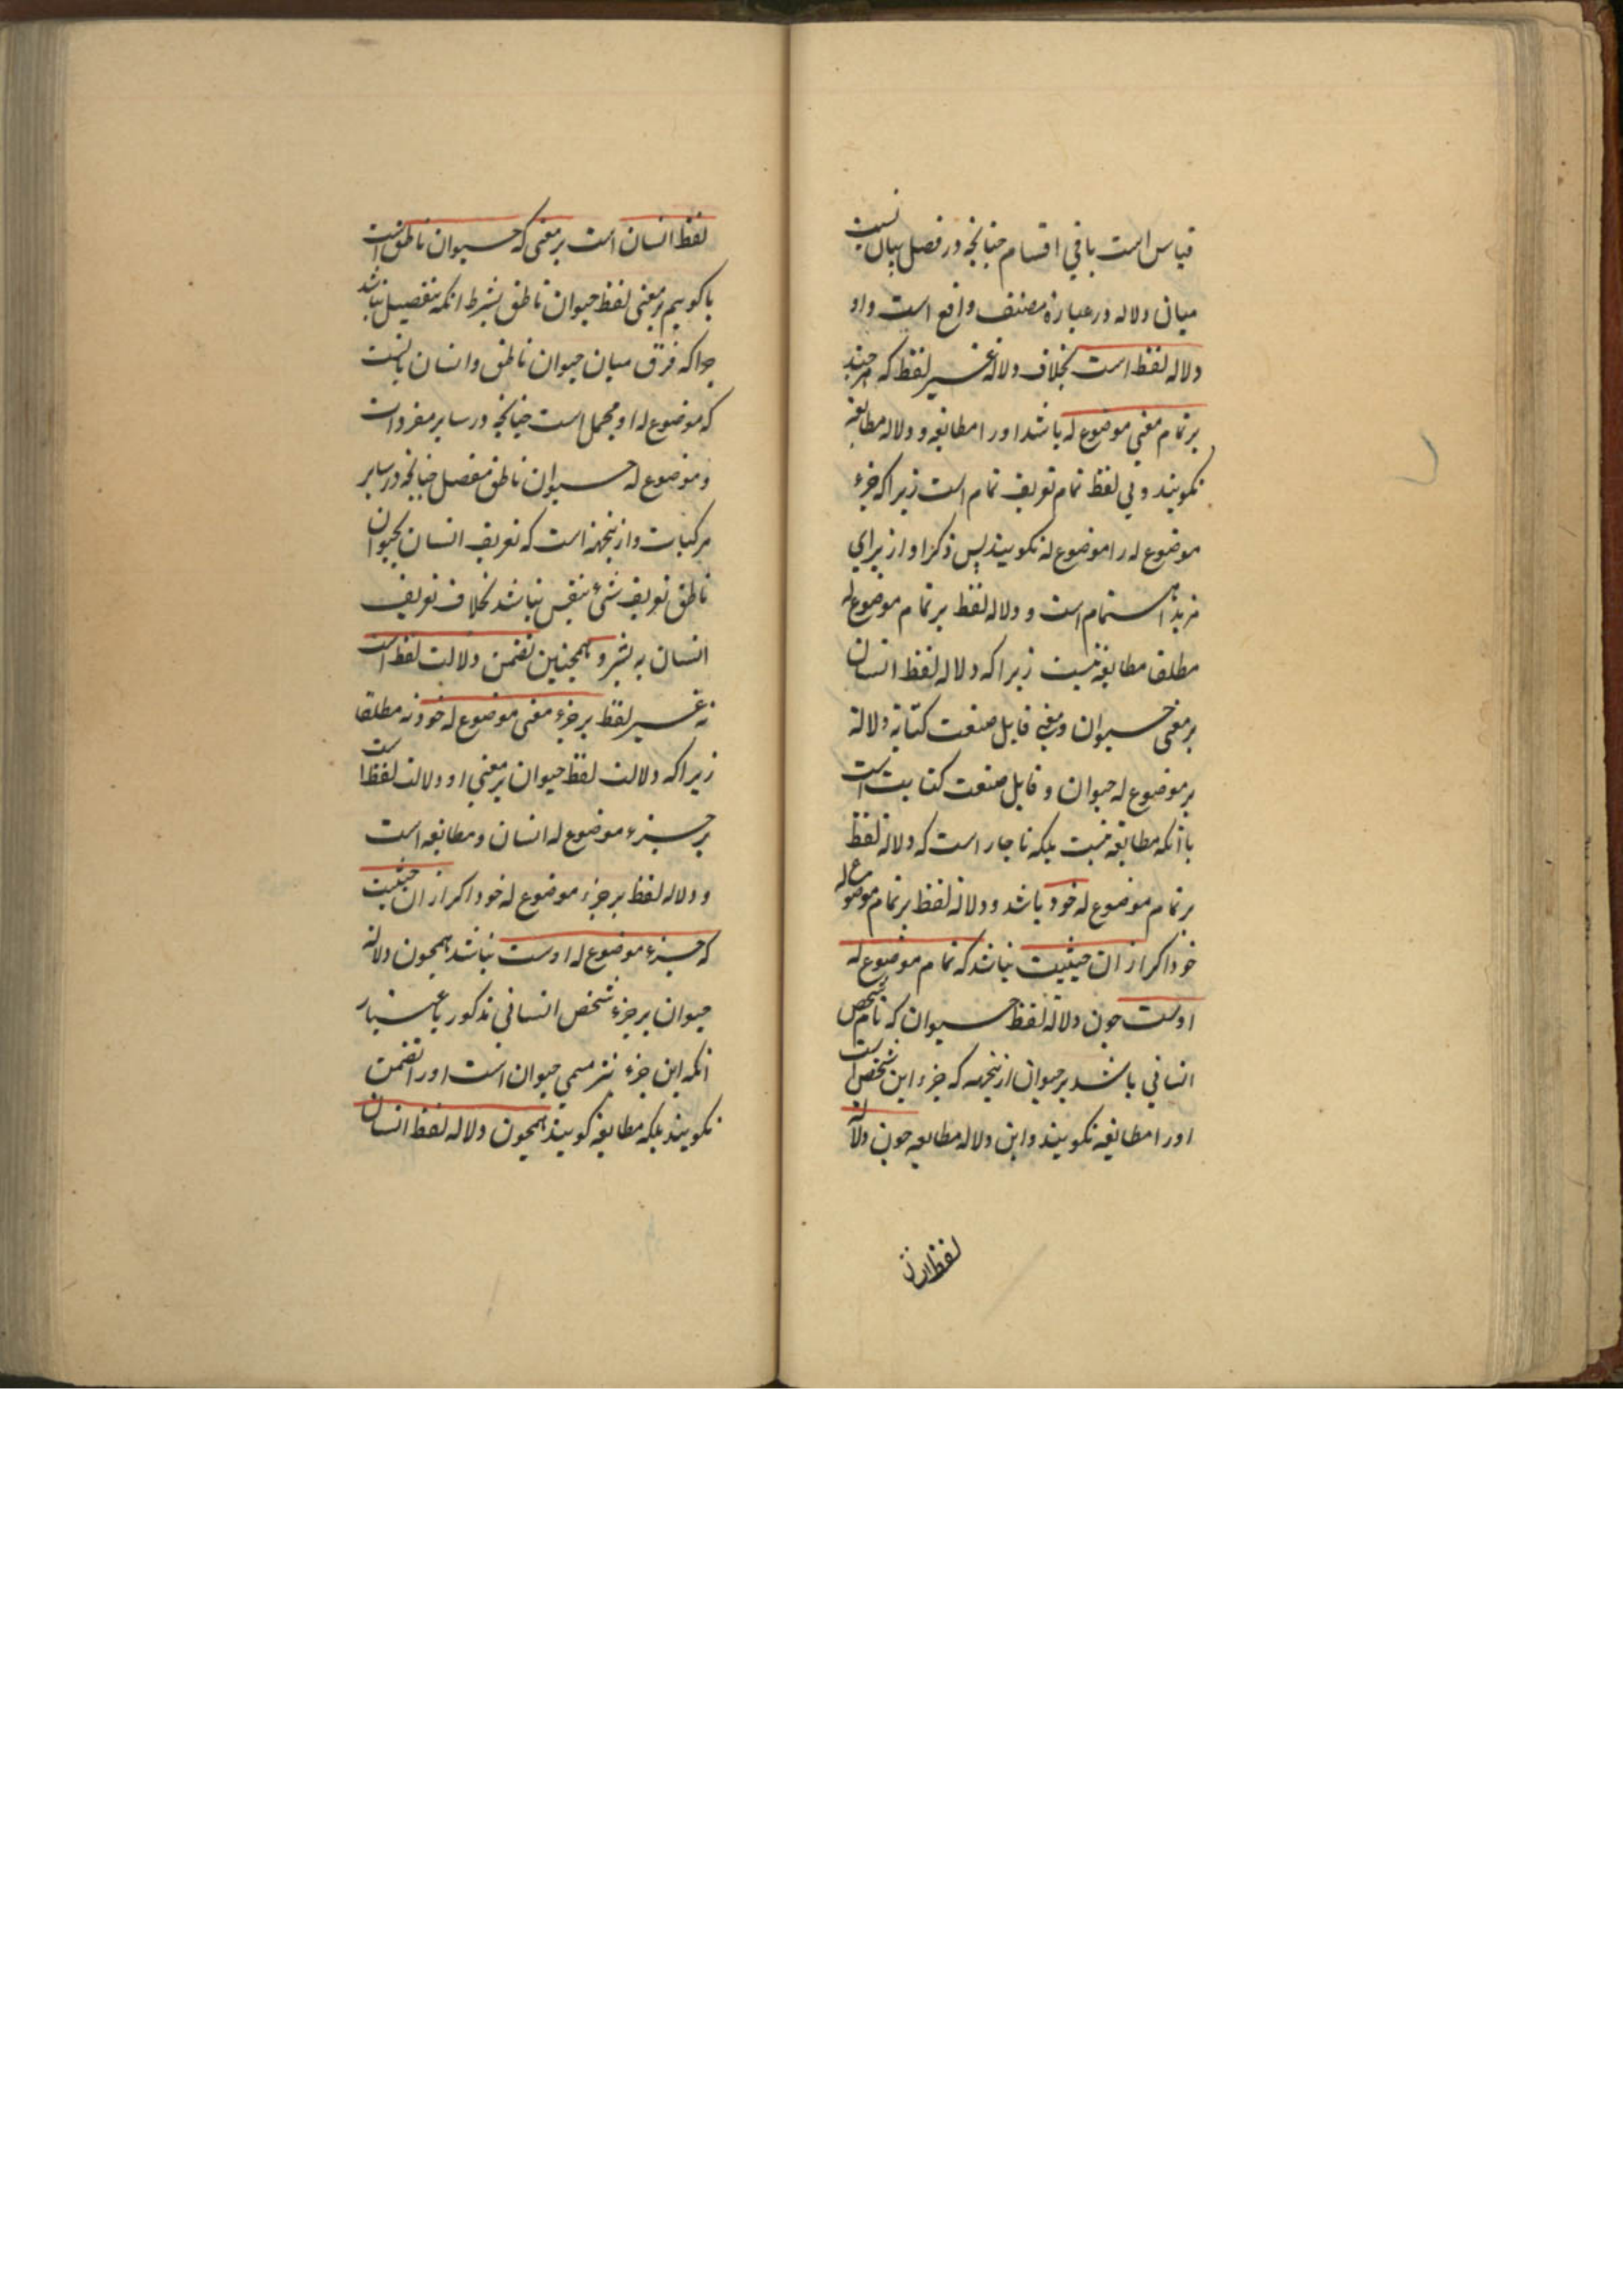 قیاس است باقی اقسام چنانچه در فصل بیان نسبت
میان دلاله در عبارة مصنف واقع است و او
دلاله لفظ است بخلاف دلالة غیر لفظ که هرچند
بر تمام معنی موضوع له باشد او را مطابقه و دلاله مطابقة
نکویند و بی لفظ تمام تعریف تمام است زیرا که جزء
موضوع له را موضوع له نکویند پس ذکر او از برای
مزید اهتمام است و دلاله لفظ بر تمام موضوع له
مطلقا مطابقه نیست زیرا که دلاله لفظ انسان
بر معنی حیوان و معنی قابل صنعت کتابة دلالة
بر موضوع له حیوان و قابل صنعت کتابت است
با آنکه مطابقه نیست بلکه ناچار است که دلالة لفظ
بر تمام موضوع له خود باشد و دلالة لفظ بر تمام موضوع له
خود اکر از ان حیثیت نباشد که تمام موضوع له
اوست جون دلالة لفظ حیوان که نام شخص
انسانی باشد بر حیوان ازینجهه که جزء این شخص است
او را مطابقه نکویند و این دلاله مطابقه جون دلالة
لفظ انسان
لفظ انسان است بر معنی که حیوان ناطق است
یا کوییم بر معنی لفظ حیوان ناطق بشرط انکه بتفصیل نباشد
جرا که فرق میان حیوان ناطق و انسان انست
که موضوع له او مجمل است چنانچه در سایر مفردات
و موضوع له حیوان ناطق مفصل چنانچه در سایر
مرکبات و ازینجهة است که تعریف انسان بحیوان
ناطق تعریف شیء بنفس نباشد بخلاف تعریف
انسان به بشر و همچنین تضمن دلالت لفظ است
نه غیر لفظ بر جزء معنی موضوع له خود نه مطلقا
زیرا که دلالت لفظ حیوان بر معنی او دلالت لفظ است
بر جزء موضوع له انسان و مطابقه است
و دلاله لفظ بر جزء موضوع له خود اکر از ان حیثیت
که جزء موضوع له اوست نباشد همچون دلالة
حیوان بر جزء شخص انسانی مذکور باعتبار
انکه این جزء نیز مسمی حیوان است او را تضمن
نکویند بلکه مطابقه کویند همچون دلاله لفظ انسان